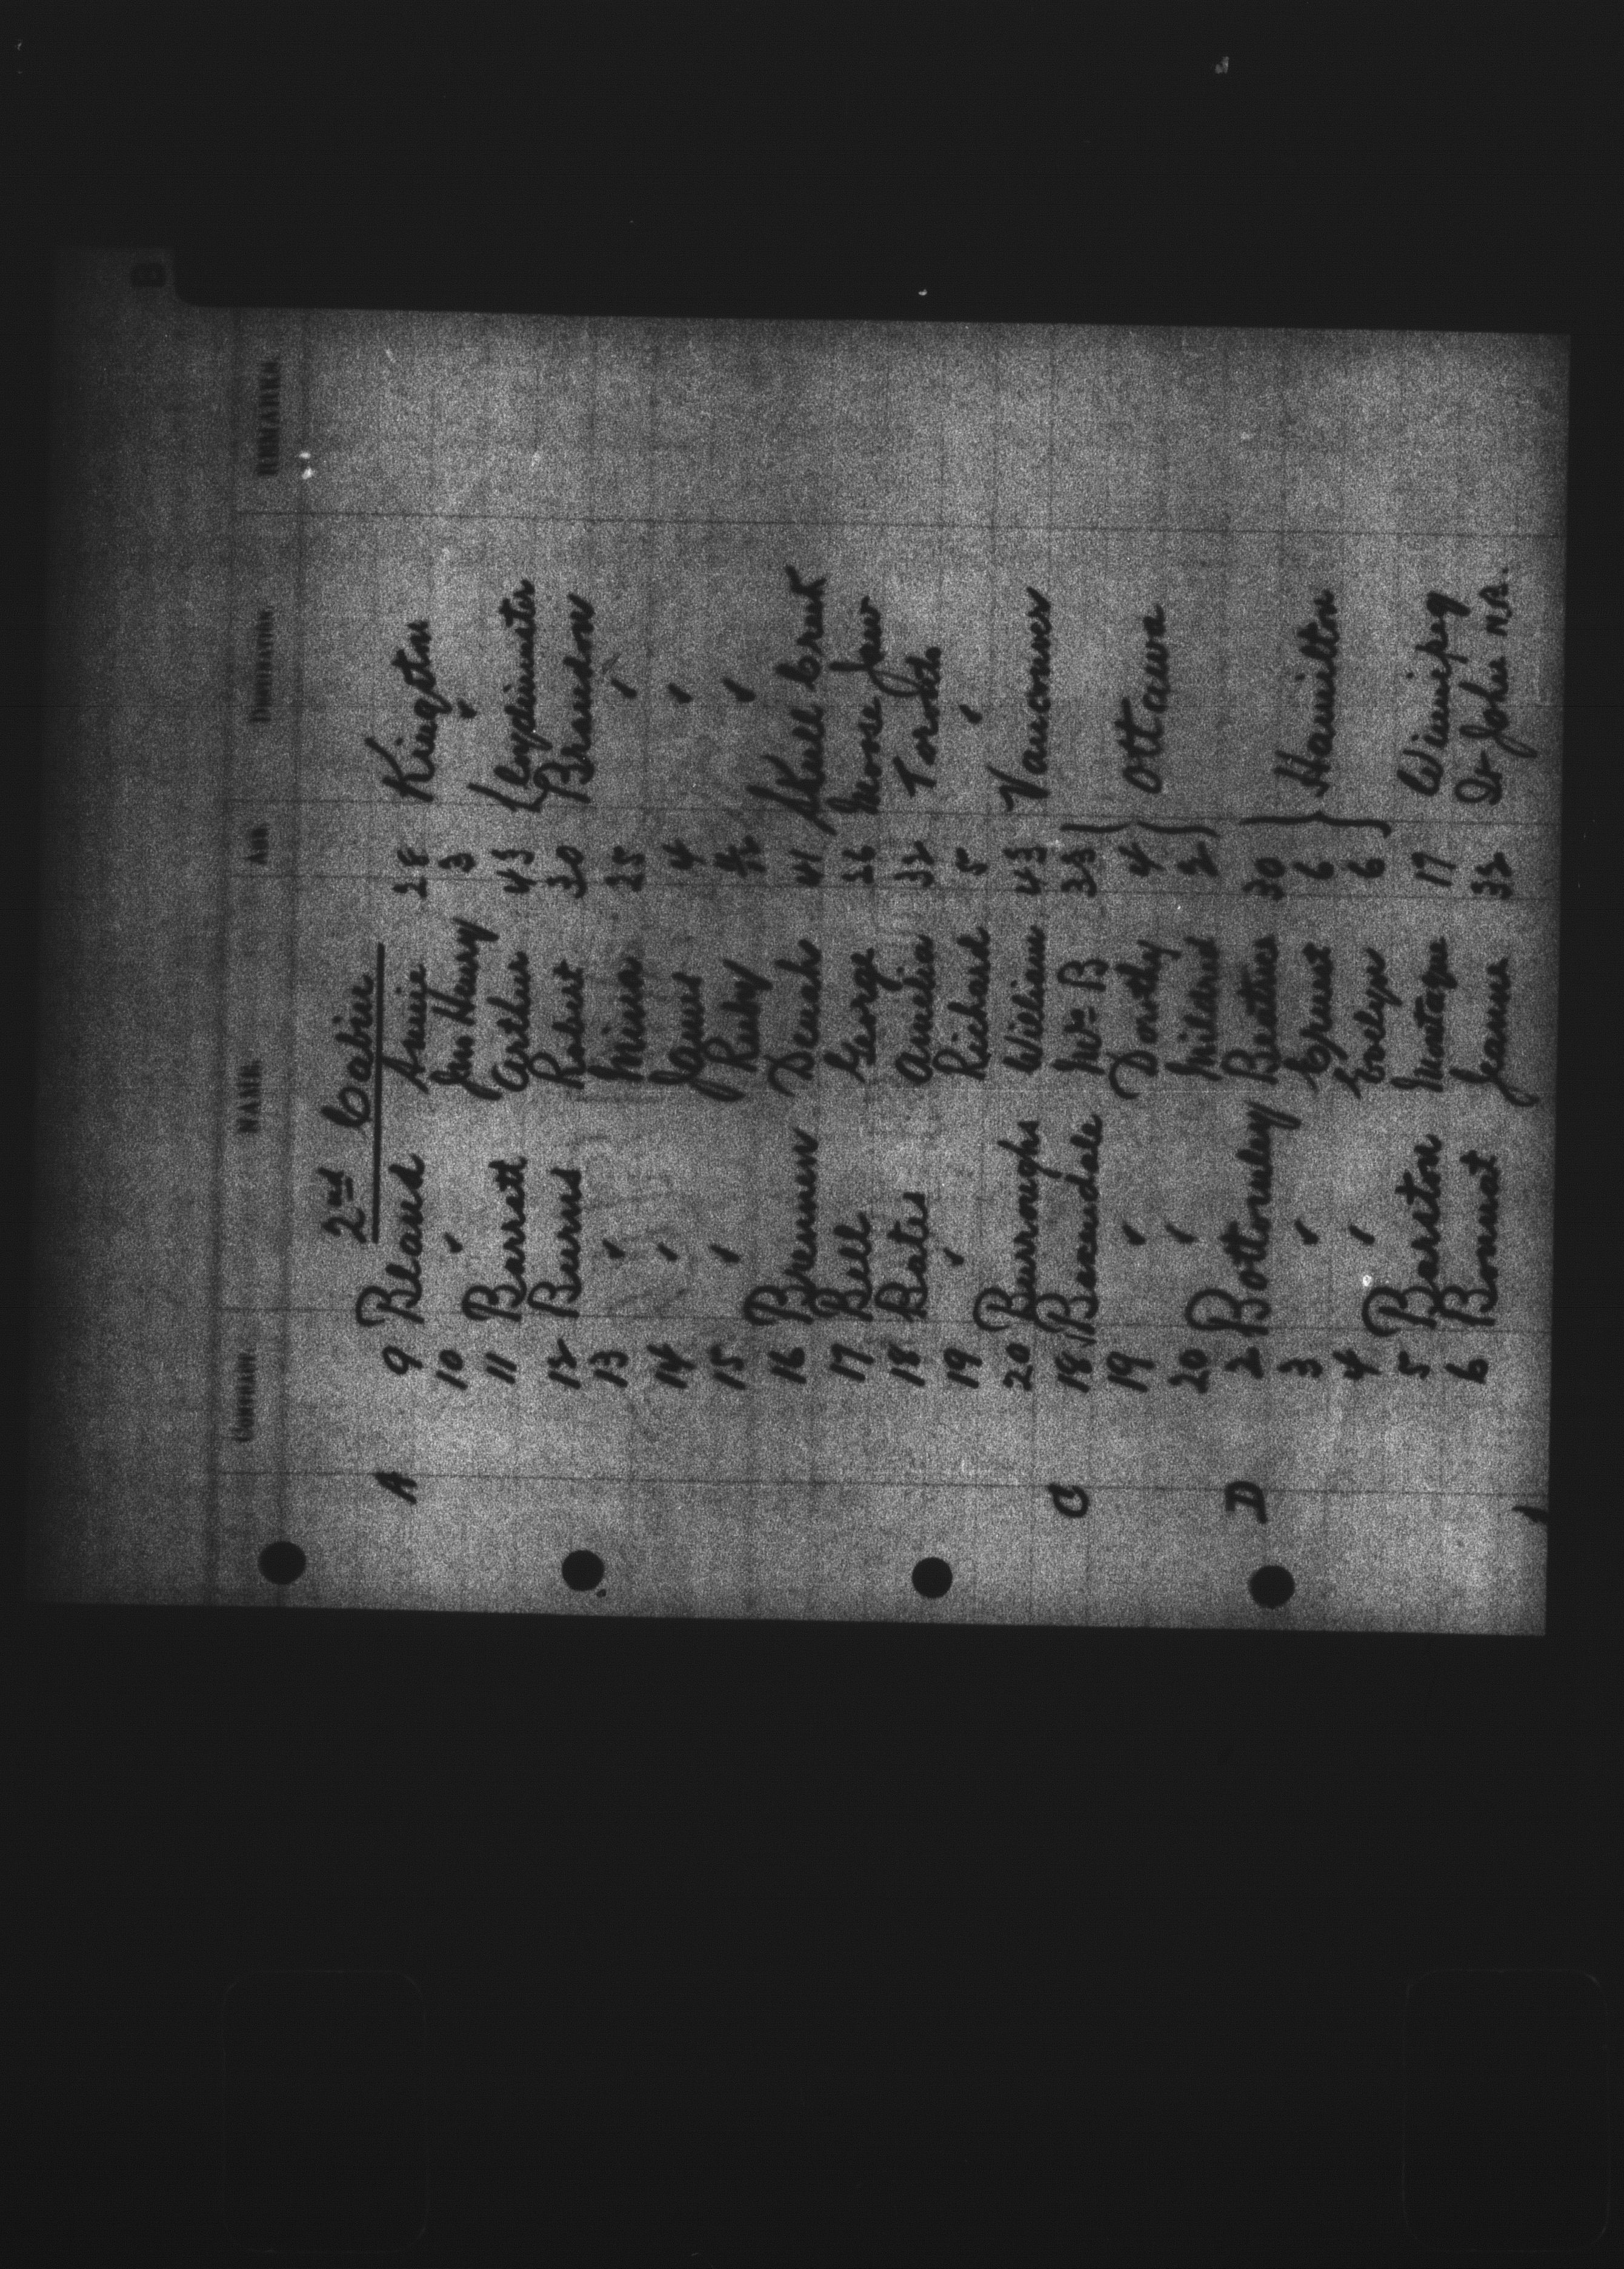 CONTRACT NAME AGE DESTINATION REMARKS
2nd Cabin
A 9 Bland Annie 28 Kingston
10 " Jno Henry 3 "
11 Barratt Arthur 43 Lloydminster
12 Burns Robert 30 Brandon
13 " Mina 25 "
14 " James 4 "
15 " Ruby "
16 Brennen Denah 41 Skull Creek
17 Bell George 26 Moose Jaw
18 Bates Amelia 32 Toronto
19 " Richard 5 "
20 Burroughs William 43 Vancouver
C 18 Baxendale Mrs B 33
19 " Dorothy 4 Ottawa
20 " Mildred 2
D 2 Bottomley Beatrice 30
3 " Ernest 6 Hamilton
4 " Evelyn 6
5 Barston Montague 17 Winnipeg
6 Bonnat Jeanne 32 St John N.B.